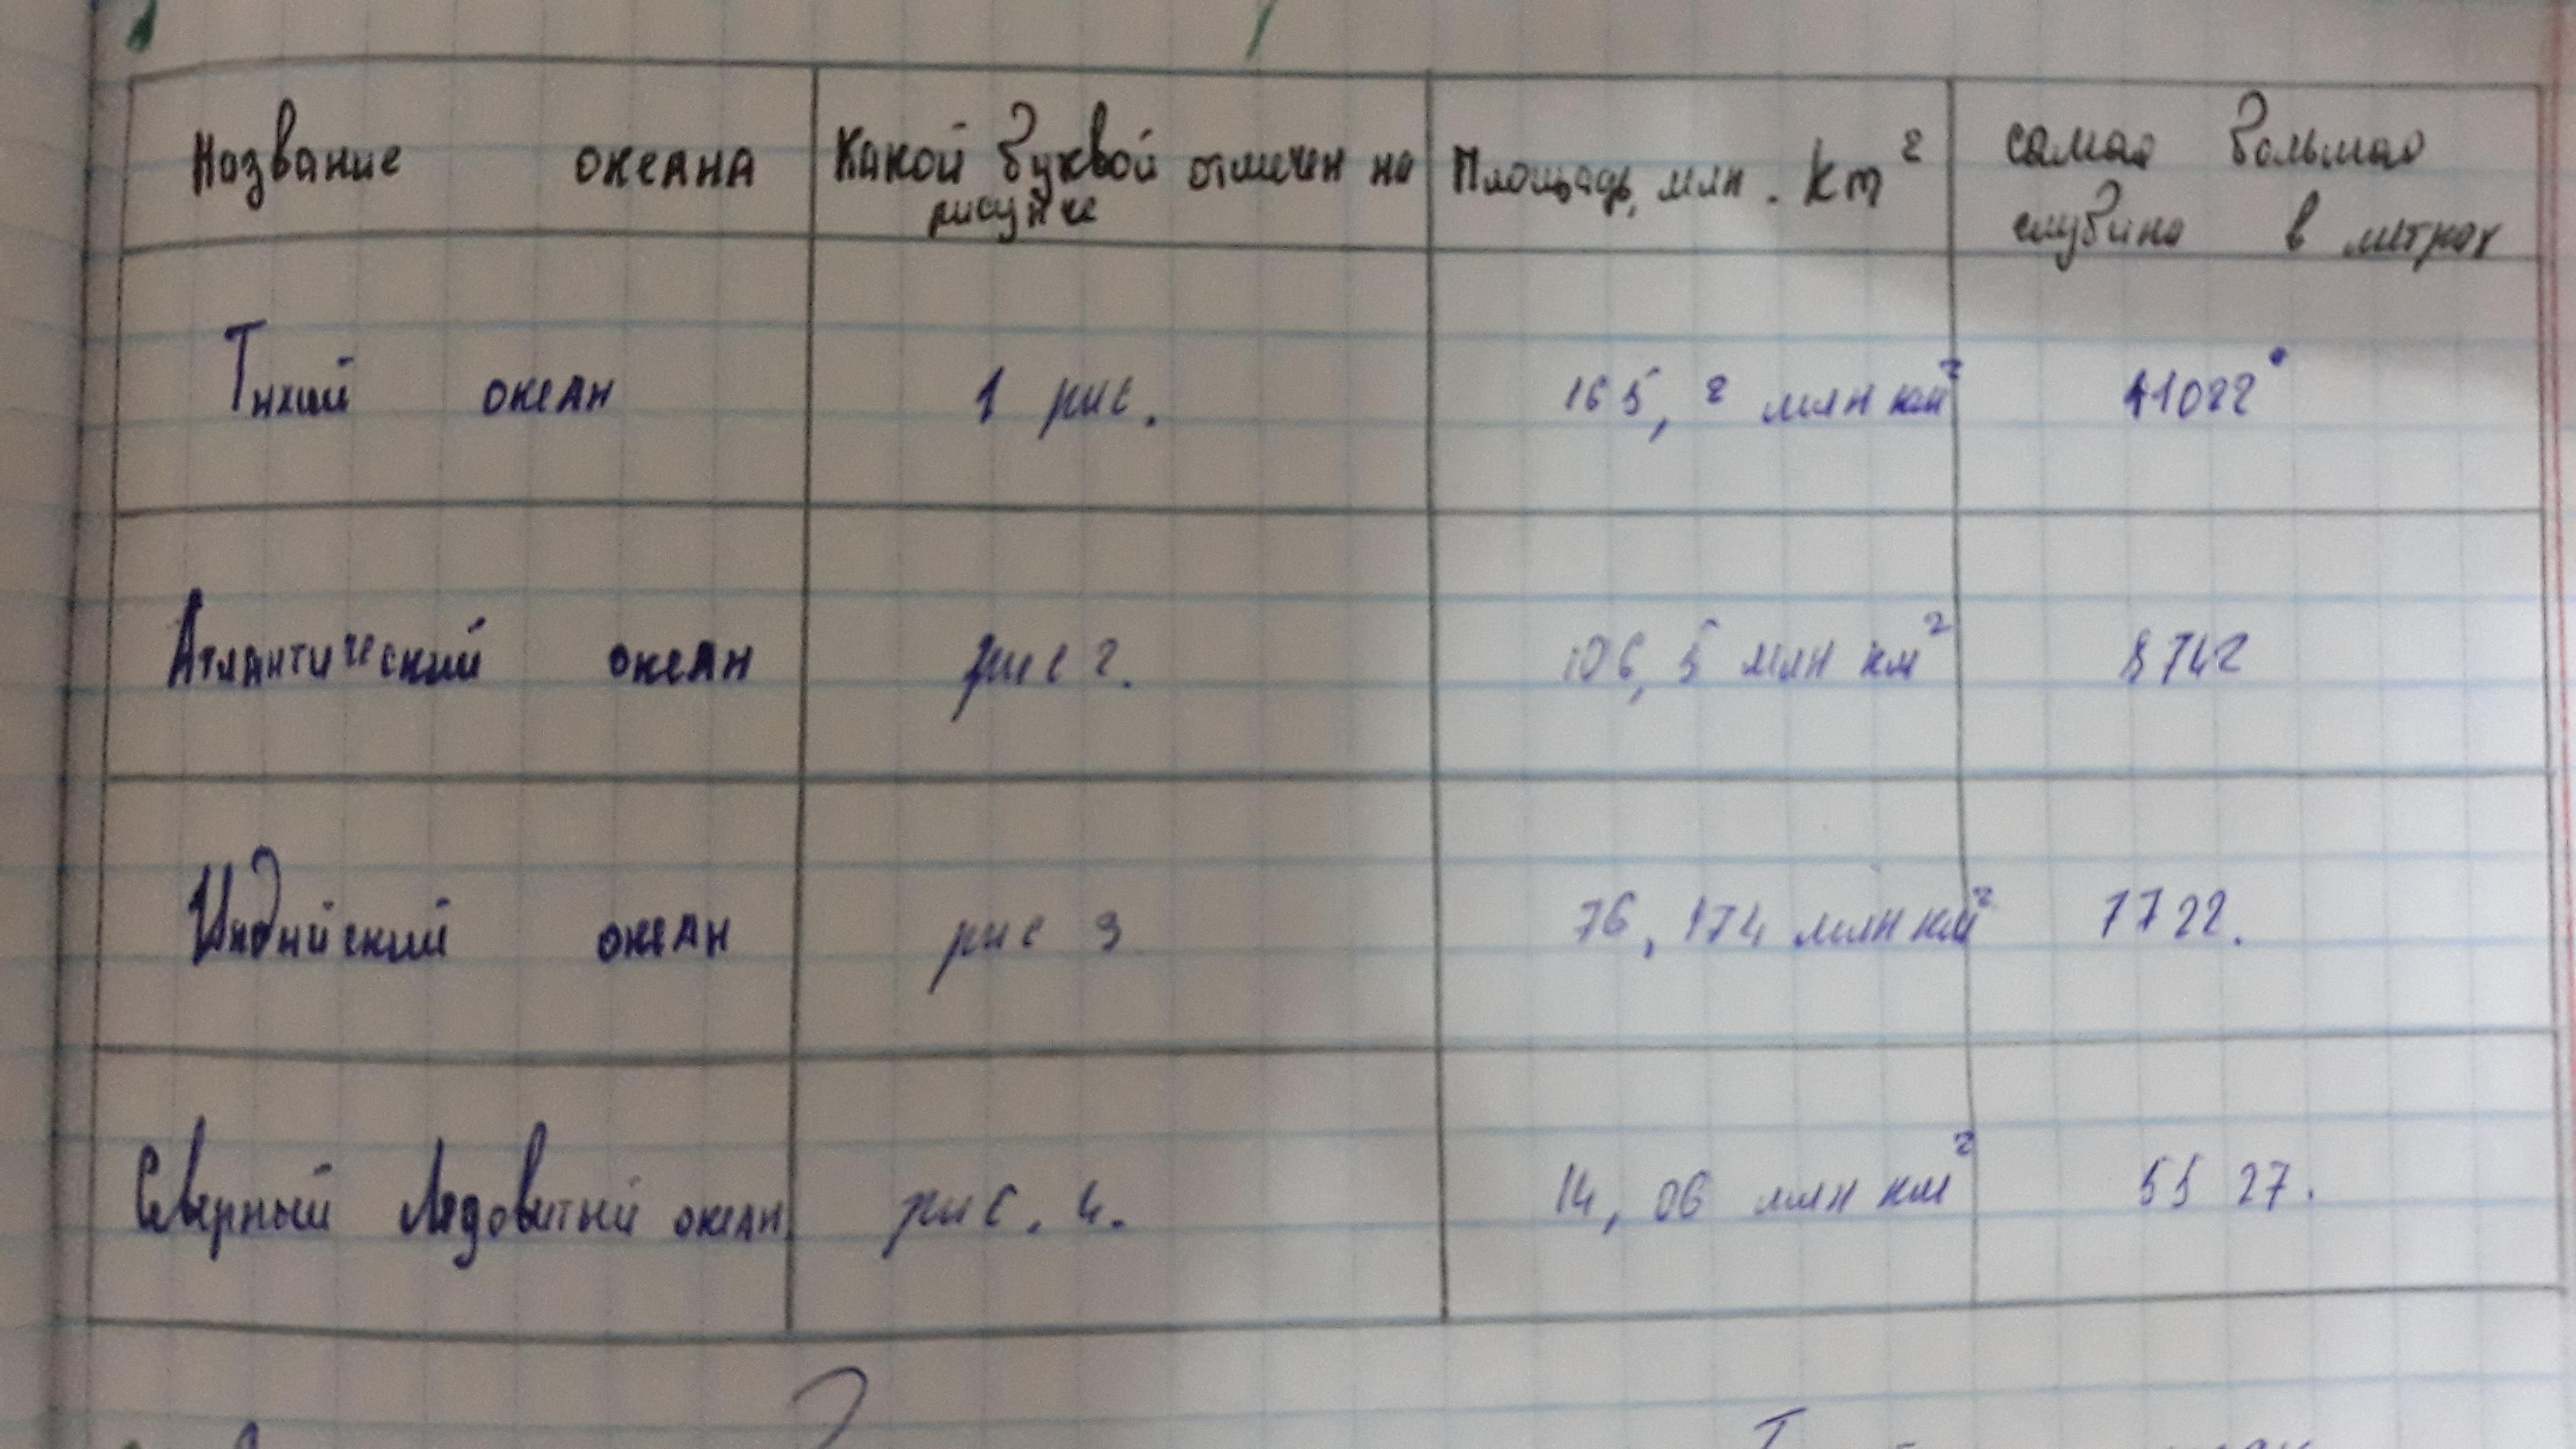 Название океана Какой буквой отмечен на Площадь, млн. km² самая большая
рисунке глубина в метрах
Тихий океан 1 рис. 165,2 млн км² 11022
Атлантический океан рис 2. 106,5 млн км² 8742
Индийский океан рис 3 76,174 млн км² 7722.
Северный Ледовитый океан рис. 4. 14,06 млн км² 5527.